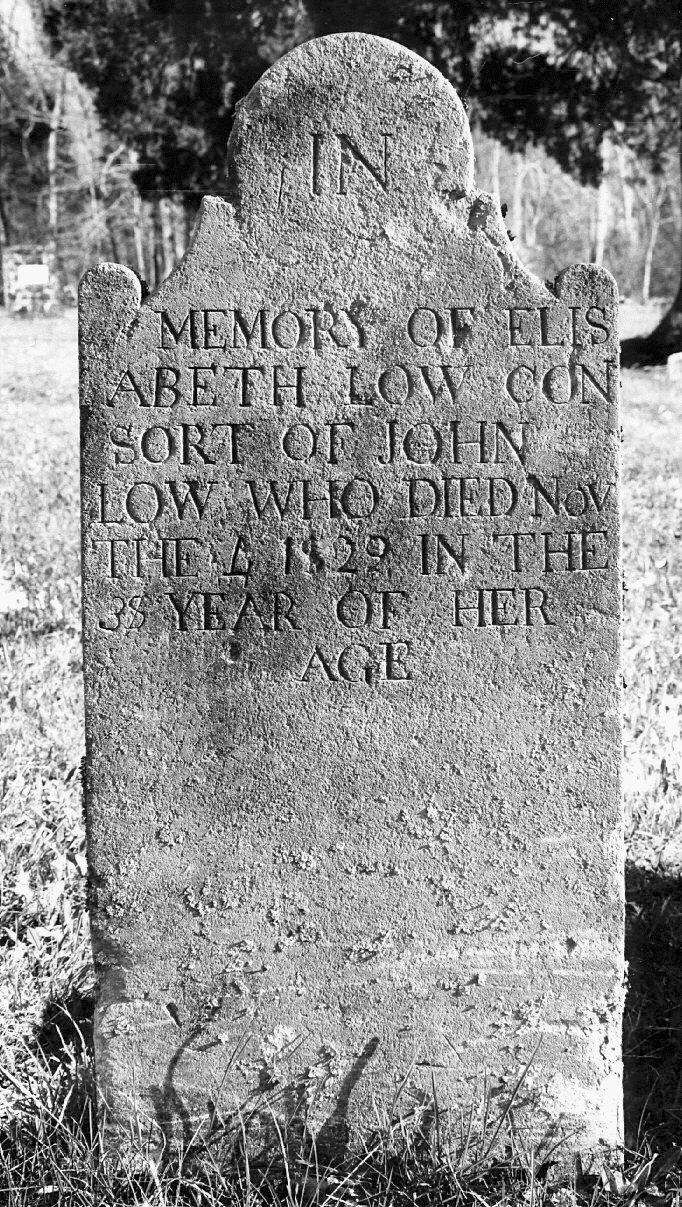 IN
MEMORY OF ELIS
ABETH LOW CON
SORT OF JOHN
LOW WHO DIED NOV
THE 4 1829 IN THE
38 YEAR OF HER
AGE